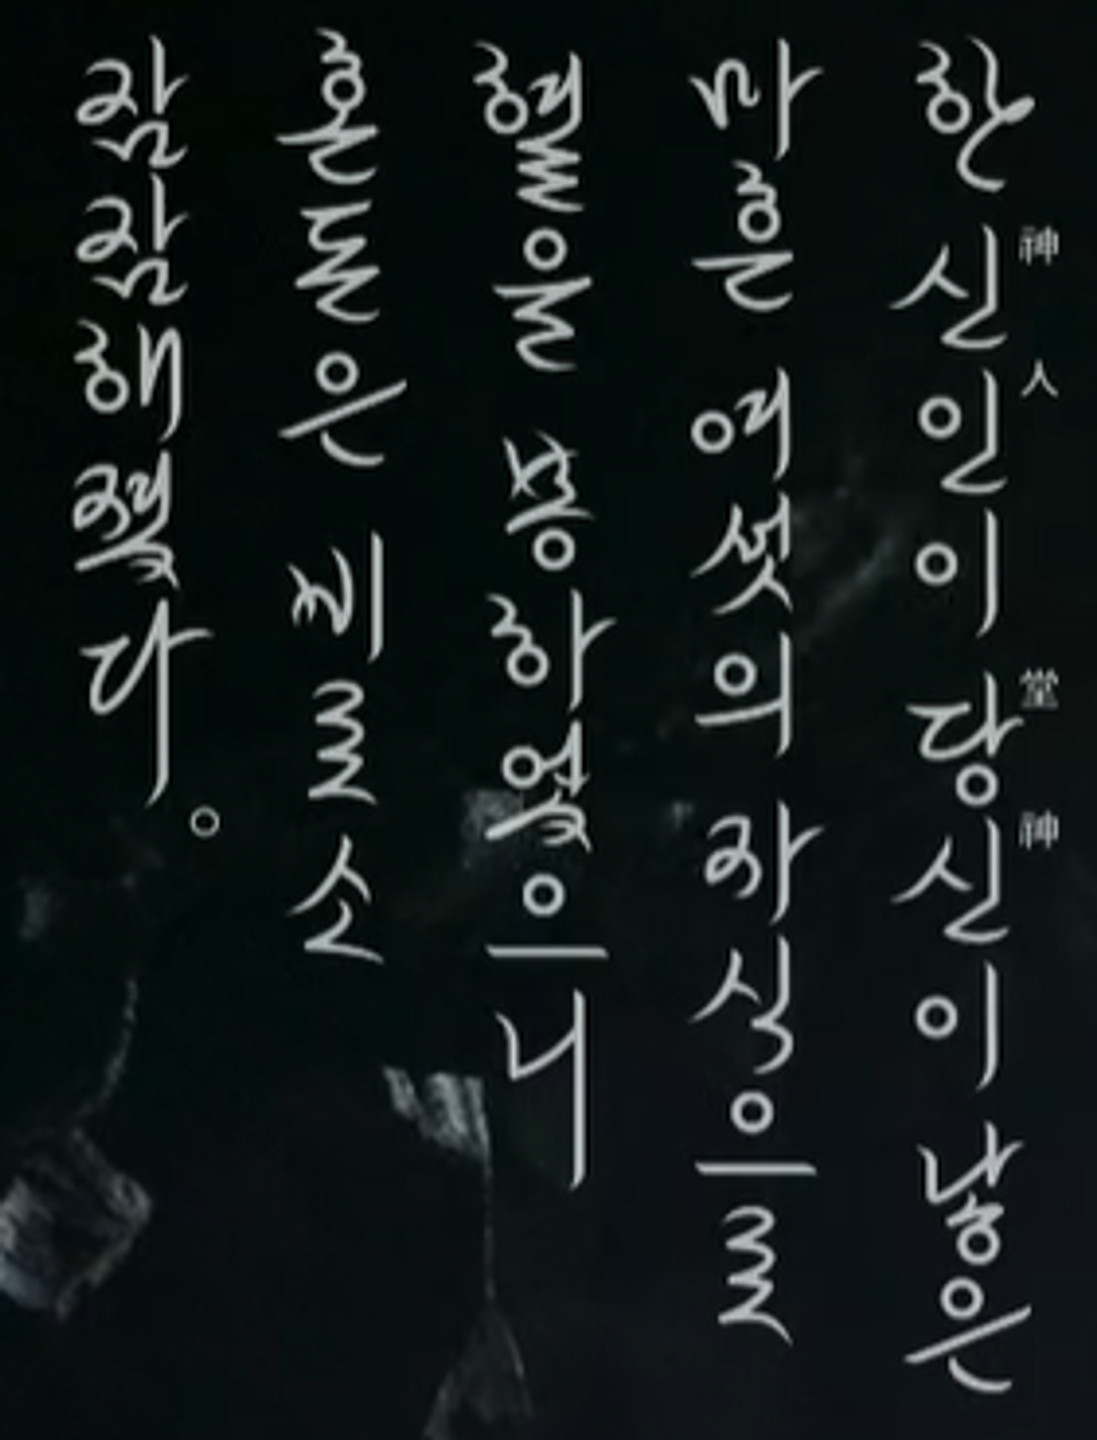 한 신인이 당신이 낳은
神人 堂神
마흔 여섯의 자식으로
혈을 봉하였으니
혼들은 비로소
잠잠해졌다。